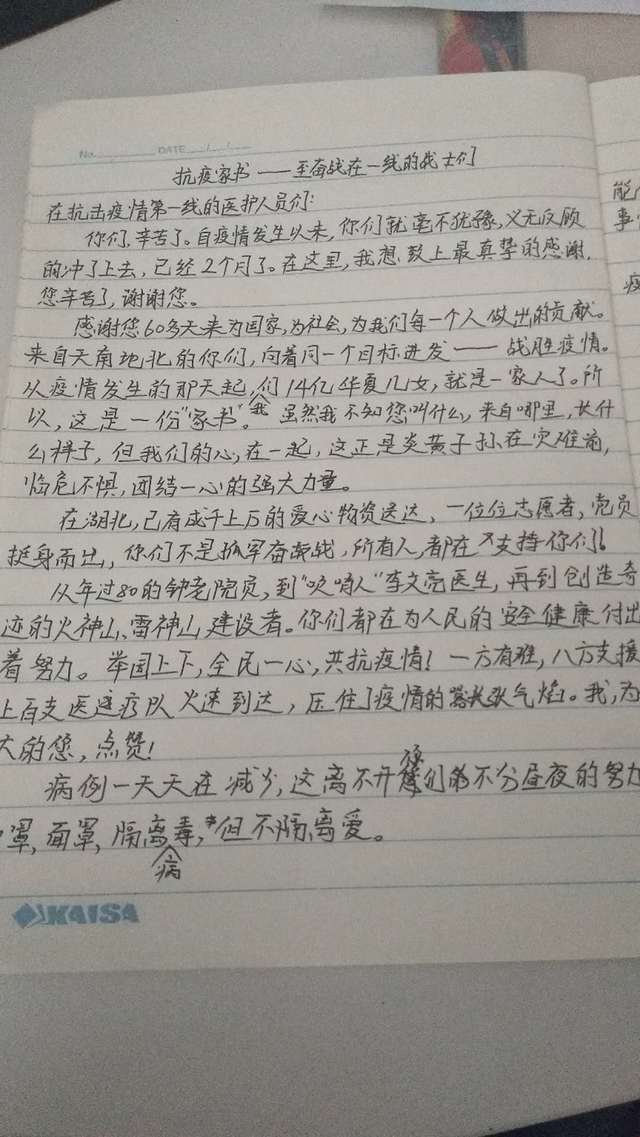 No. DATE / /
抗疫家书——至奋战在一线的战士们
在抗击疫情第一线的医护人员们:
你们,辛苦了。自疫情发生以来,你们就毫不犹豫,义无反顾
的冲了上去,已经2个月了。在这里,我想致上最真挚的感谢,
您辛苦了,谢谢您。
感谢您60多天来为国家,为社会,为我们每一个人做出的贡献。
来自天南地北的你们,向着同一个目标进发——战胜疫情。
从疫情发生的那天起,我们14亿华夏儿女,就是一家人了。所
以,这是一份"家书"。虽然我不知您叫什么,来自哪里,长什
么样子,但我们的心,在一起,这正是炎黄子孙在灾难前,
临危不惧,团结一心的强大力量。
在湖北,已有成千上万的爱心物资送达,一位位志愿者,党员
挺身而出,你们不是孤军奋战,所有人,都在支持你们!
从年过80的钟老院员,到"吹哨人"李文亮医生,再到创造奇
迹的火神山、雷神山建设者。你们都在为人民的安全健康付出
着努力。举国上下,全民一心,共抗疫情!一方有难,八方支援
上百支医疗队火速到达,压住了疫情的嚣张气焰。我,为
大的您,点赞!
病例一天天在减少,这离不开你们的不分昼夜的努力
罩,面罩,隔离病毒,但不隔离爱。
KAISA
能
事
疫